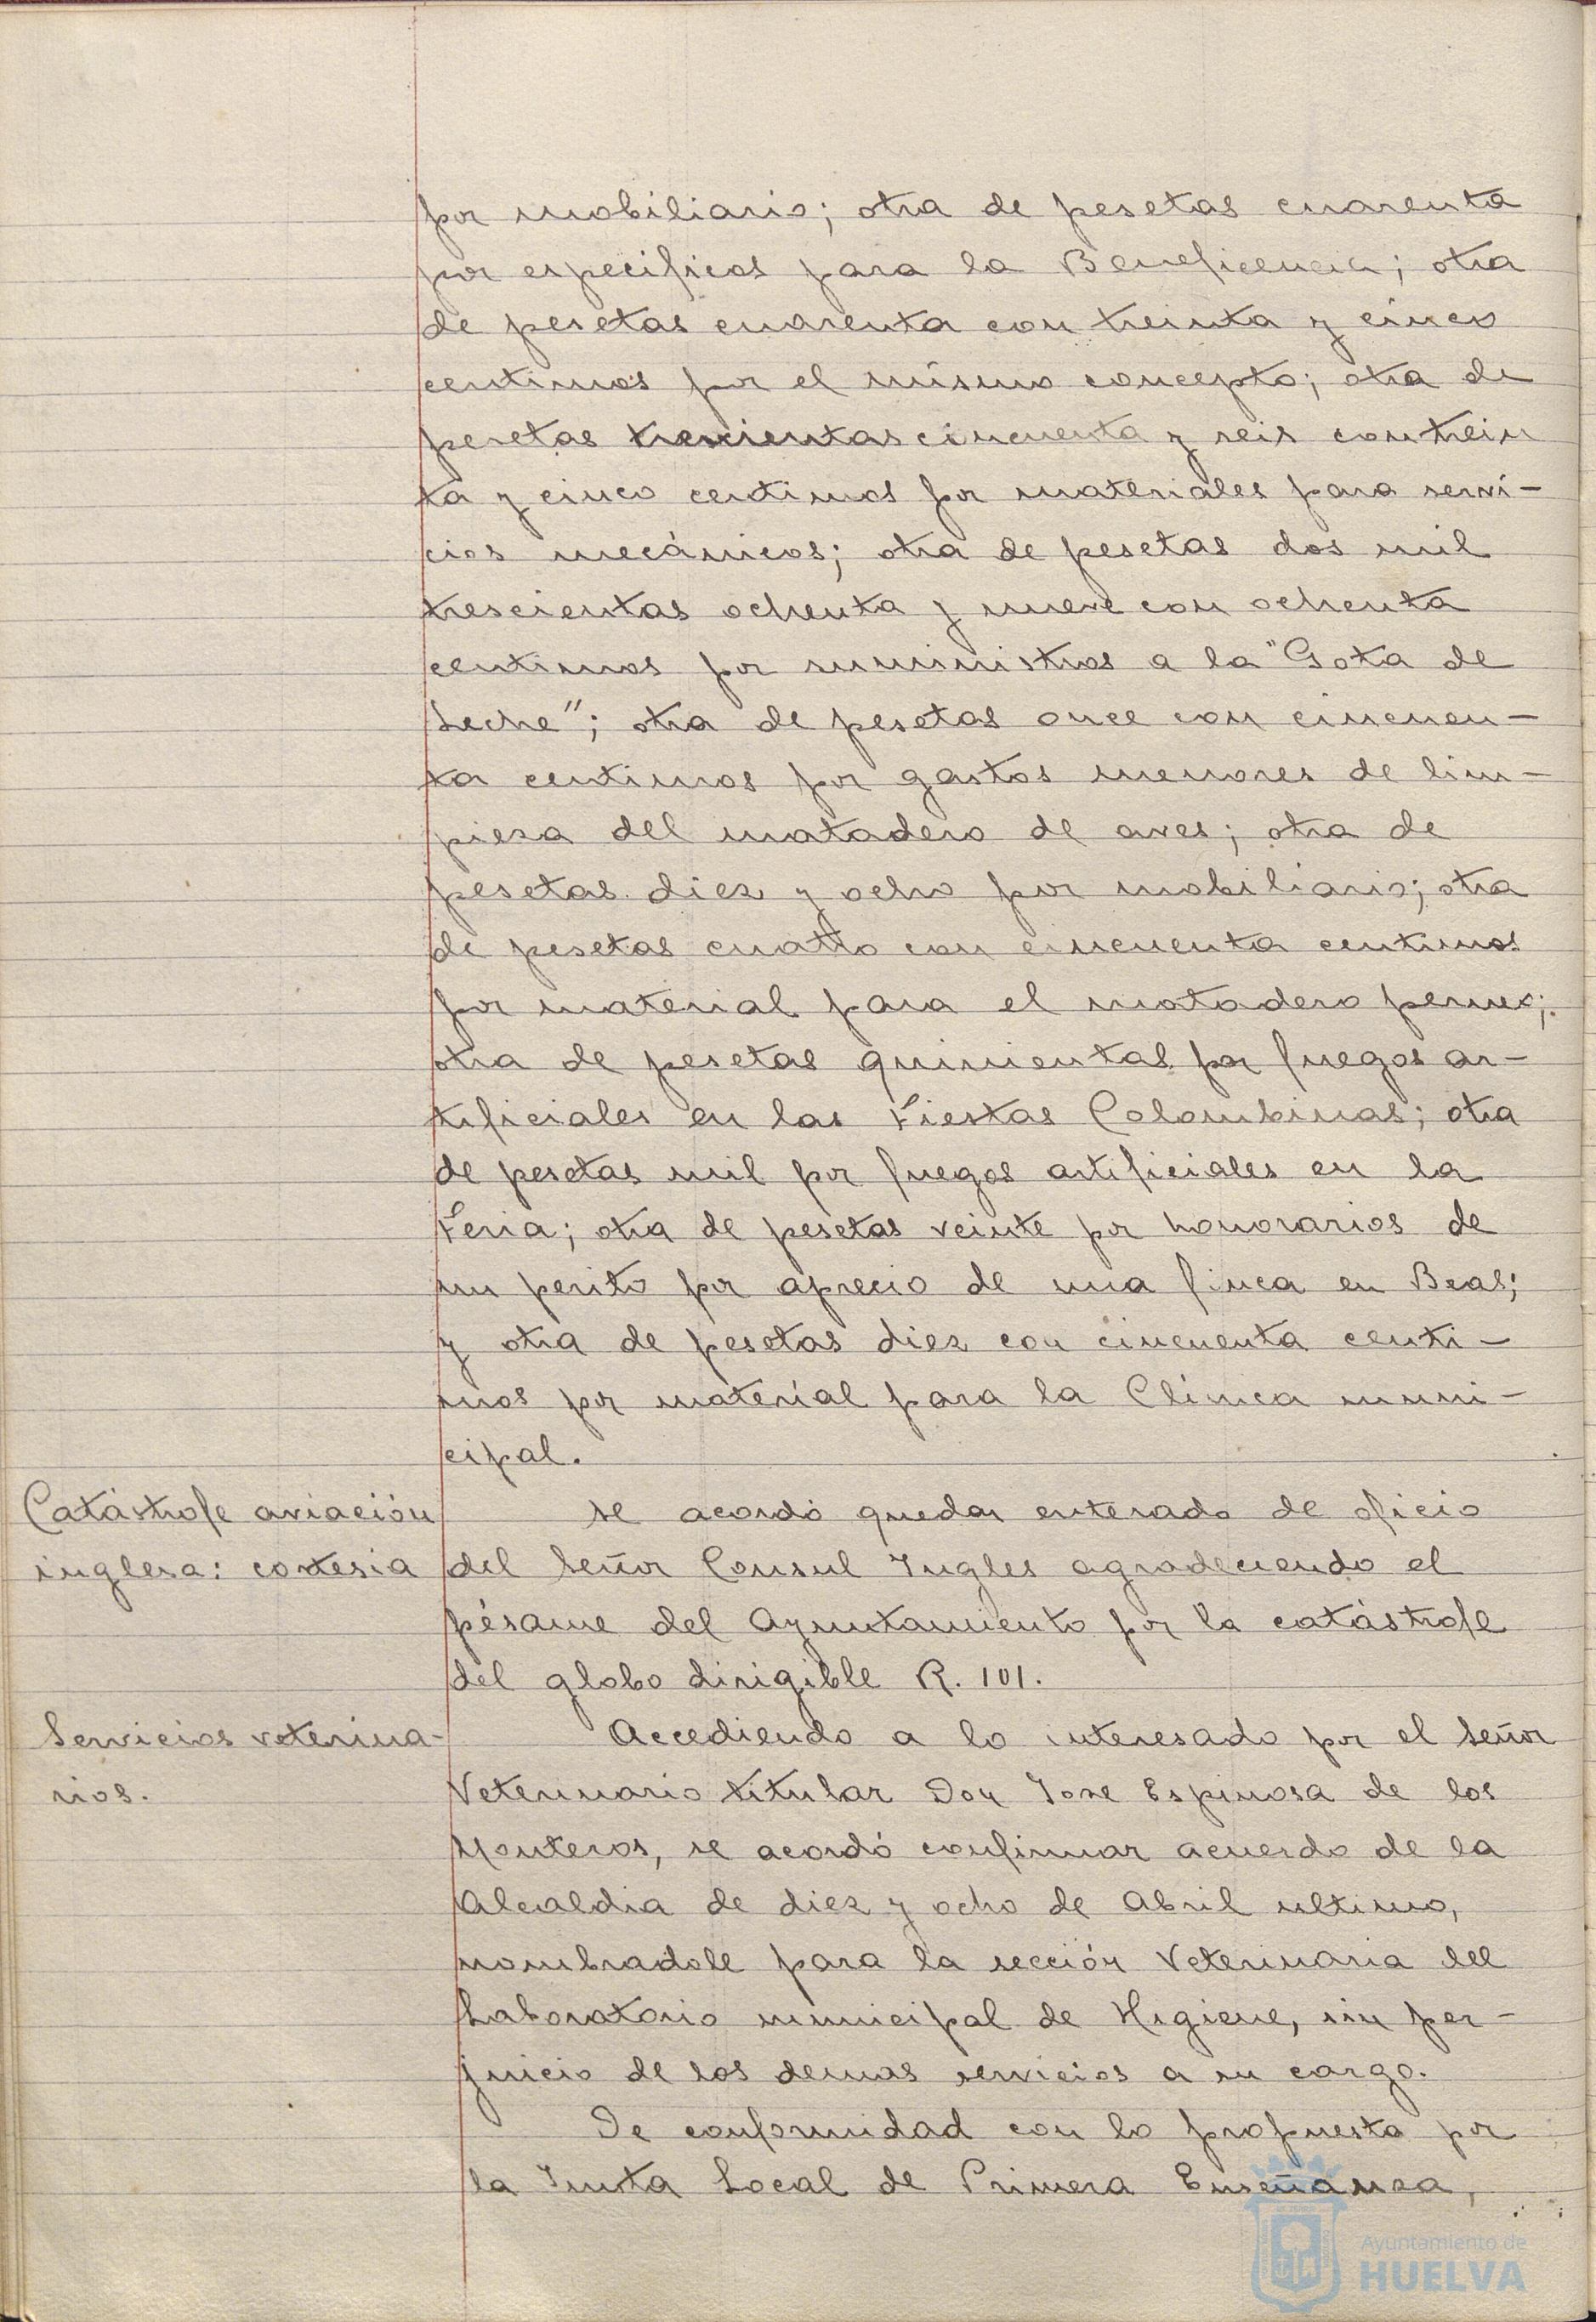 por mobiliario; otra de pesetas cuarenta
por especificos para la Beneficencia; otra
de pesetas cuarenta con treinta y cinco
centimos por el mismo concepto; otra de
pesetas trescientas cincuenta y seis con trein
ta y cinco centimos por materiales para servi-
cios mecánicos; otra de pesetas dos mil
trescientas ochenta y nueve con ochenta
centimos por suministros a la "Gota de
Leche"; otra de pesetas once con cincuen-
ta centimos por gastos menores de lim-
pieza del matadero de aves; otra de
pesetas diez y ocho por mobiliario; otra
de pesetas cuatro con cincuenta centimos
por material para el matadero
otra de pesetas quinientas por fuegos ar-
tificiales en las Fiestas Colombinas; otra
de pesetas mil por fuegos artificiales en la
Feria; otra de pesetas veinte por honorarios de
un perito por aprecio de una finca en Beas;
y otra de pesetas diez con cincuenta centi-
mos por material para la Clínica muni-
cipal.
Catástrofe aviación
inglesa: cortesia
Se acordó quedar enterado de oficio
del Señor Consul Ingles agradeciendo el
pésame del Ayuntamiento por la catástrofe
del globo dirigible R. 101.
Servicios veterina-
rios.
Accediendo a lo interesado por el Señor
Veterinario titular Don Jose Espinosa de los
Monteros, se acordó confirmar acuerdo de la
Alcaldia de diez y ocho de Abril ultimo,
nombradole para la sección Veterinaria del
Laboratorio municipal de Higiene, sin per-
juicio de los demas servicios a su cargo.
De conformidad con lo propuesto por
la Junta Local de Primera Enseñanza,
Ayuntamiento de
HUELVA